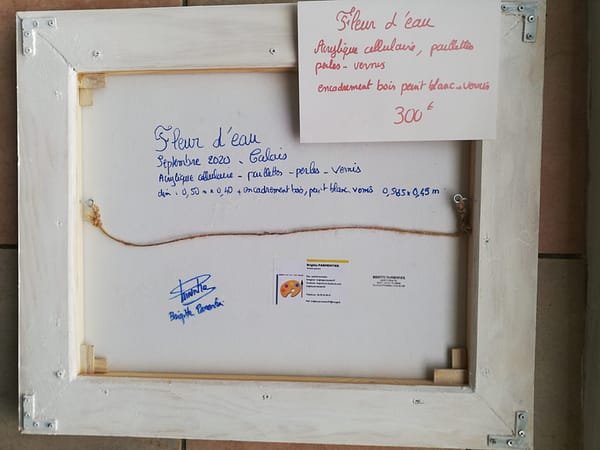 Fleur d'eau
Acrylique cellulaire, paillettes
perles - vernis
encadrement bois peint blanc - vernis
300€
Fleur d'eau
Septembre 2020 - Calais
Acrylique cellulaire - paillettes - perles - vernis
dim : 0,50 x 0,40 + encadrement bois, peint blanc vernis 0,565 x 0,45 m
Brigitte PARMENTIER